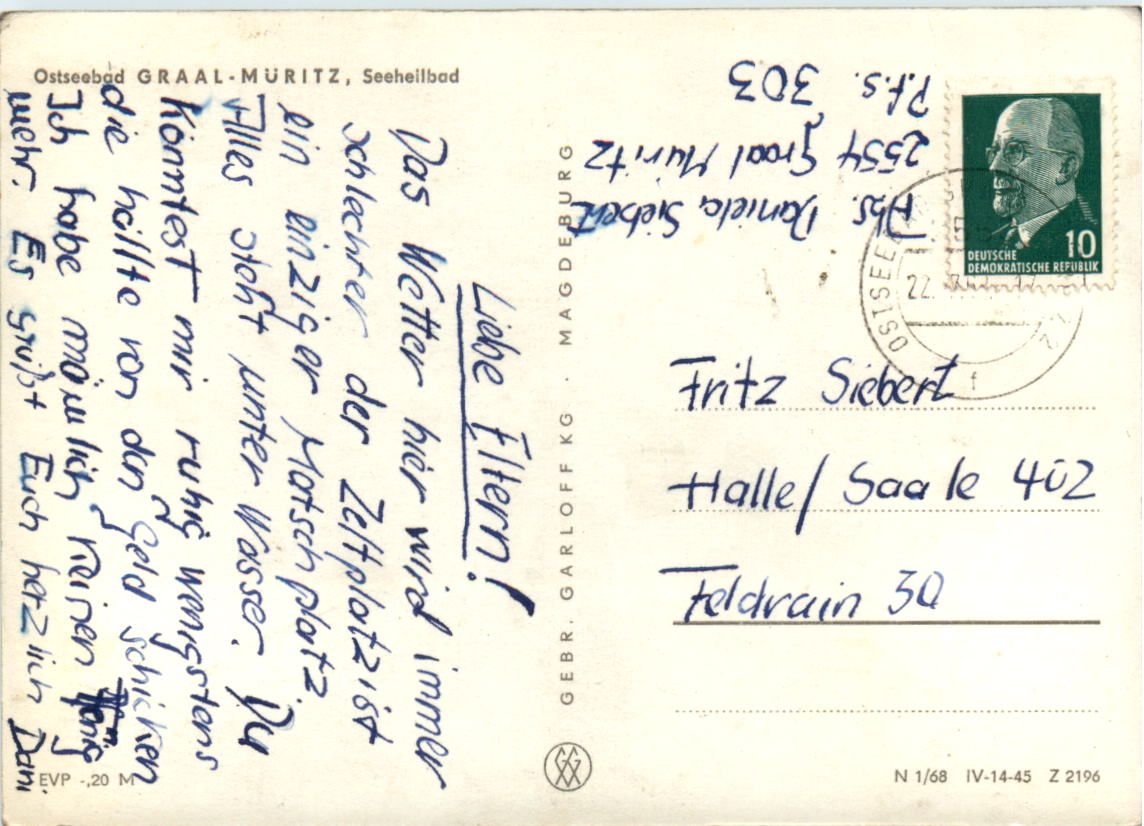 Ostseebad GRAAL-MÜRITZ, Seeheilbad
Liebe Eltern!
Das Wetter hier wird immer
schlechter der Zeltplatz ist
ein einziger Matschplatz.
Alles steht unter Wasser. Du
könntest mir ruhig wenigstens
die hällfte von den Geld schicken
Ich habe mömlich keinen
mehr. Es grüßt Euch herzlich Dani
EVP -,20 M
GEBR. GARLOFF KG · MAGDEBURG
Abs. Daniela Siebert
2554 Graal Müritz
P.f.s. 303
DEUTSCHE
DEMOKRATISCHE REPUBLIK
10
OSTSEEBAD
22.
Fritz Siebert
Halle/ Saale 402
Feldrain 30
N 1/68 IV-14-45 Z 2196